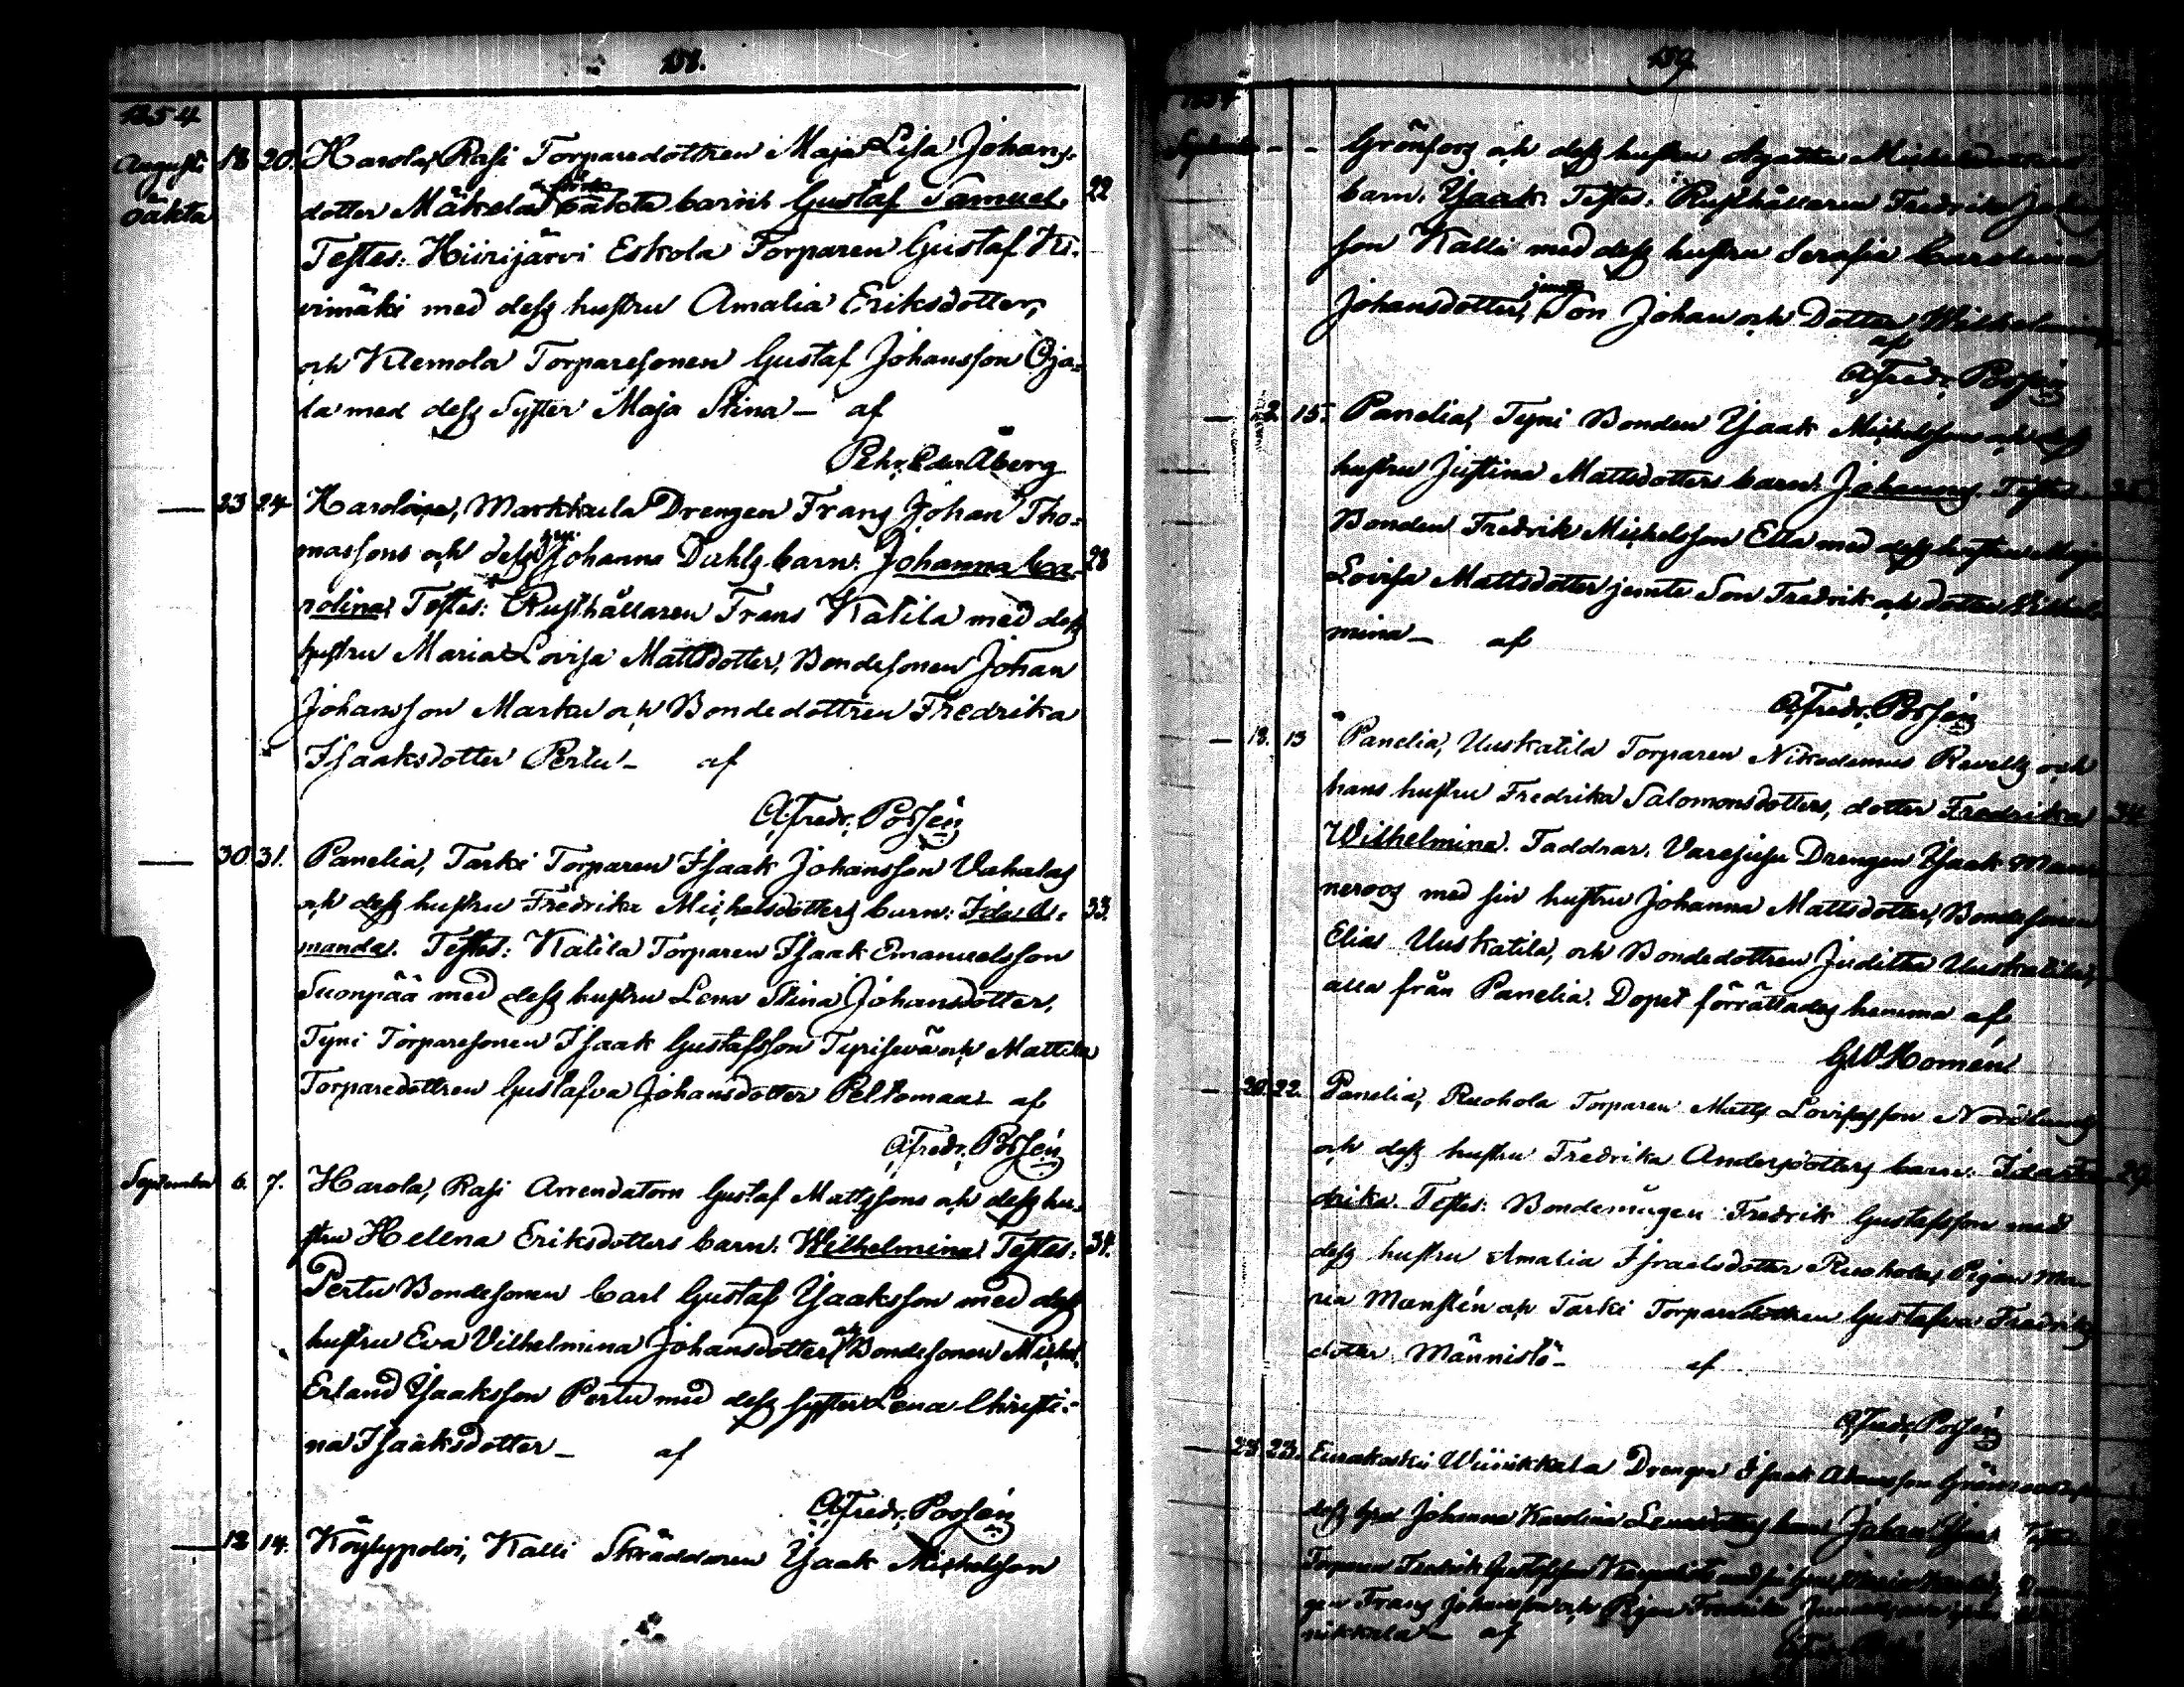 158.
1854
Augusti 18 20. Harola, Rasi Torparedottren Maja Lisa Johans-
oäkta dotter Mäkelas oäkta barn: Gustaf Samuel. 22
Testes: Hiirijärvi Eskola Torparen Gustaf Ki-
vimäki med dess hustru Amalia Eriksdotter,
och Klemola Torparesonen Gustaf Johansson Oja-
la med dess Syster Maja Stina — af
Åberg
— 23 24 Harola, Markkula Drengen Frans Johan Tho-
massons och dess Johanna Dahls barn: Johanna Ca- 28
rolina. Testes: Rusthållaren Frans Katila med dess
hustru Maria Lovisa Mattsdotter, Bondesonen Johan
Johansson Marku och Bondedottren Fredrika
Isaaksdotter Pertu — af
Alfredr. Possén
— 30 31. Panelia, Tarki Torparen Isaak Johansson Vahalas
och dess hustru Fredrika Michelsdotters barn: Ida A- 33.
manda. Testes: Katila Torparen Isaak Emanuelsson
Suonpää med dess hustru Lena Stina Johansdotter,
Tyni Torparesonen Isaak Gustafsson Tyrisevä och Mattila
Torparedottren Gustafva Johansdotter Peltomaa — af
Alfredr. Possén
September 6. 7. Harola, Rasi Arrendatorn Gustaf Mattssons och dess hu-
stru Helena Eriksdotters barn: Wilhelmina. Testes: 34.
Pertu Bondesonen Carl Gustaf Ysaaksson med dess
hustru Eva Vilhelmina Johansdotter och Bondesonen Michel
Erland Ysaaksson Pertu med dess syster Lena Christi-
na Isaaksdotter — af
Alfredr. Possén
— 12 14. Köylypolvi, Kalli Skräddaren Ysaak Michelsson
159
1854
September - - Grönfors och dess hustru Agatha
barn: Ysaak. Testes: Rusthållaren Fredrik Johans-
son Kalli med dess hustru Serafia Carolina
Johansdotter, jemte Son Johan och Dotter Wilhelmina
af
Alfredr. Possén
— 15. Panelia, Tyni Bonden Ysaak Michelssons och dess
hustru Justina Mattsdotters barn: Johannes. Testes:
Bonden Fredrik Michelsson Eila med dess hustru Maja
Lovisa Mattsdotter jemte Son Fredrik och dotter Vilhel-
mina — af
Alfredr. Possén
— 13. 13 Panelia, Uuskatila Torparen Nikodemus Revells och
hans hustru Fredrika Salomonsdotters, dotter Fredrika 34
Wilhelmina. Faddrar. Drengen Ysaak Man-
neroos med sin hustru Johanna Mattsdotter, Bondesonen
Elias Uuskatila, och Bondedottren Juditha Uuskatila,
alla från Panelia. Dopet förrättades hemma af
GW Homén
— 20. 22. Panelia, Ruohola Torparen Matts Lovisasson Nordlunds
och dess hustru Fredrika Andersdotters barn: Ida Fre- 29.
drika. Testes: Bondemågen Fredrik Gustafsson med
dess hustru Amalia Israelsdotter Ruohola, Pigan Ma-
ria Monstén och Tarki Torparedottren Gustafva Fredriks-
dotter Männistö — af
Alfredr. Possén
— 23 23. Eurakoski Wiinikkala Drengen Isaak Adamsson
dess hustru Johanna Karolina barn: Johan Ysaak Testes
Torparen Fredrik Gustafsson med
gen Frans Johansson och Pigan Fredrika
nikkala — af